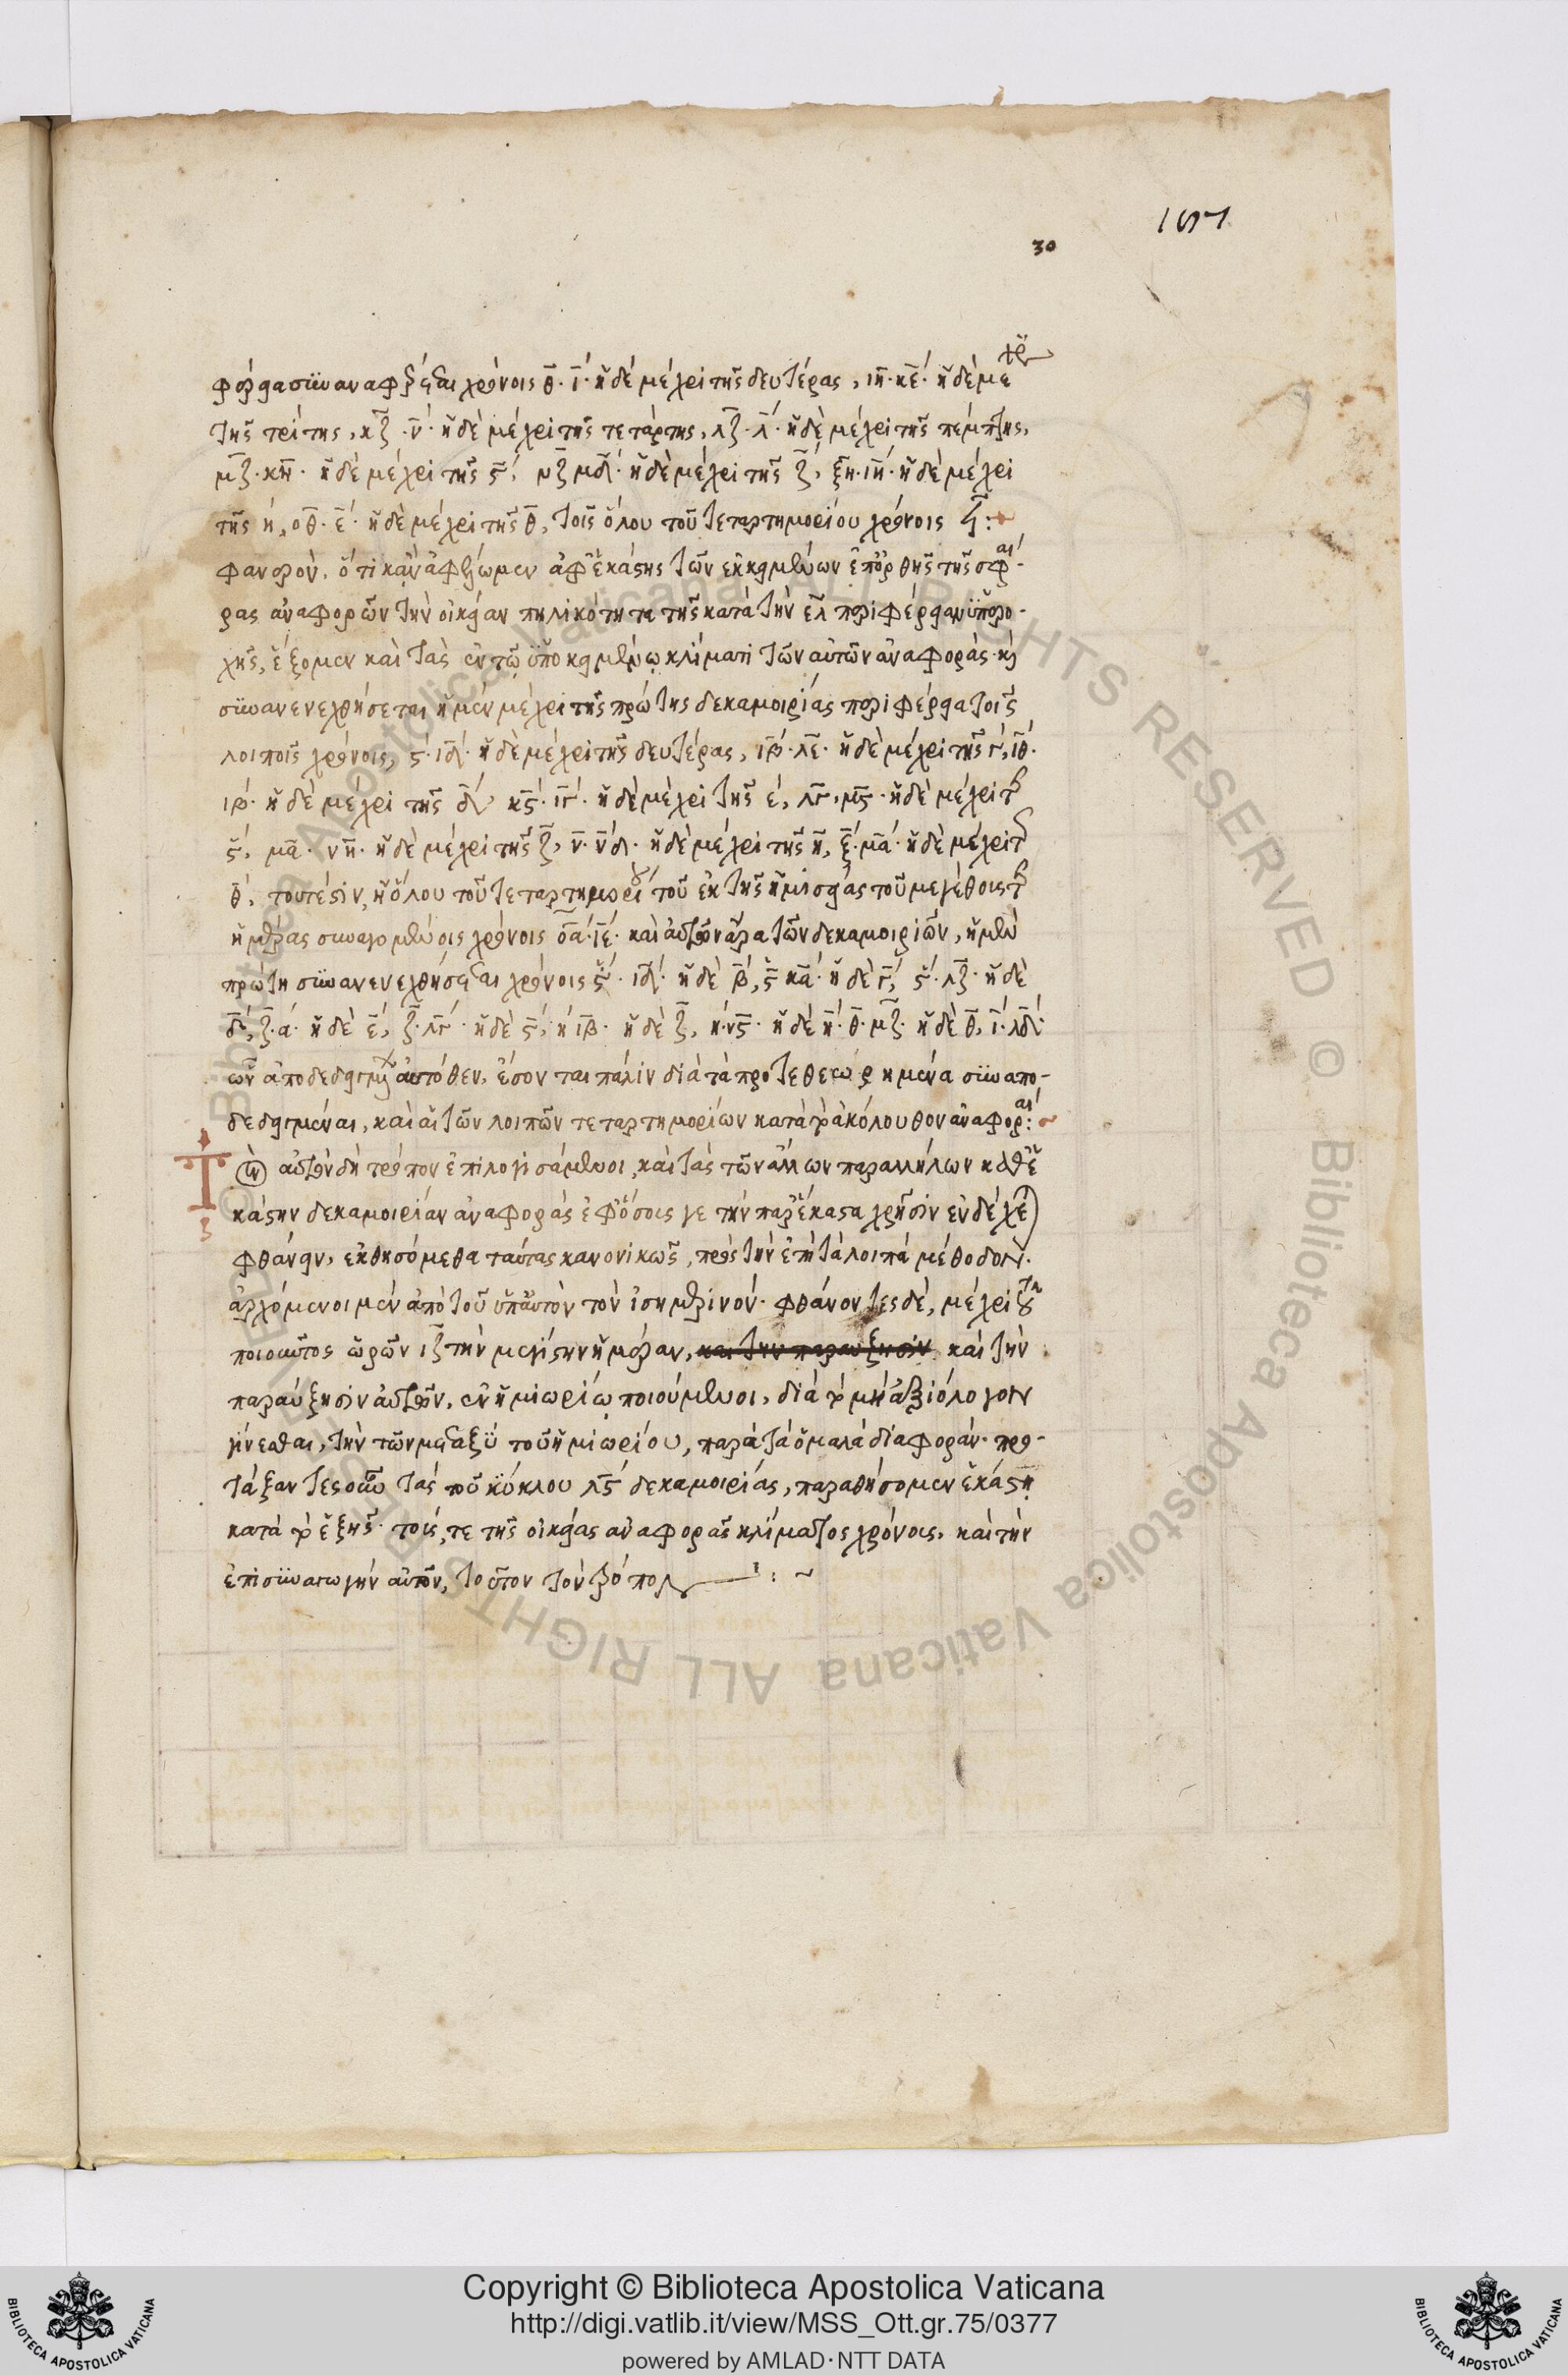 157
30
φέρεια συναναφέρεται χρόνοις θ. ι. ἡ δὲ μέχρι τῆς δευτέρας, ιη. κε. ἡ δὲ μέχρι
τῆς τρίτης, κζ. ν. ἡ δὲ μέχρι τῆς τετάρτης, λζ. λ. ἡ δὲ μέχρι τῆς πέμπτης,
μζ. κη. ἡ δὲ μέχρι τῆς ϛ, νζ μδ. ἡ δὲ μέχρι τῆς ζ, ξη. ιη. ἡ δὲ μέχρι
τῆς η, οθ. ε. ἡ δὲ μέχρι τῆς θ, τοῖς ὅλου τοῦ τεταρτημορίου χρόνοις :
φανερὸν, ὅτι κἂν ἀφέλωμεν ἀφ' ἑκάστης τῶν ἐκκειμένων ἐπ' ὀρθῆς τῆς σφαί-
ρας ἀναφορῶν τὴν οἰκείαν πηλικότητα τῆς κατὰ τὴν ελ περιφέρειαν ὑπερο-
χῆς, ἕξομεν καὶ τὰς ἐν τῷ ὑποκειμένῳ κλίματι τῶν αὐτῶν ἀναφοράς. καὶ
συνανενεχθήσεται ἡ μὲν μέχρι τῆς πρώτης δεκαμοιρίας περιφέρεια τοῖς
λοιποῖς χρόνοις, ϛ. ιδ. ἡ δὲ μέχρι τῆς δευτέρας, ιβ. λε. ἡ δὲ μέχρι τῆς γ, ιθ.
ιβ. ἡ δὲ μέχρι τῆς δ, κϛ. ιγ. ἡ δὲ μέχρι τῆς ε, λγ. μϛ. ἡ δὲ μέχρι τῆς
ϛ, μα. νη. ἡ δὲ μέχρι τῆς ζ, ν. νδ. ἡ δὲ μέχρι τῆς η, ξ. μα. ἡ δὲ μέχρι τῆς
θ, τουτέστιν, ἡ ὅλου τοῦ τεταρτημορίου τοῦ ἐκ τῆς ἡμισείας τοῦ μεγέθους τῆς
ἡμέρας συναγομένοις χρόνοις οα. ιε. καὶ αὐτῶν ἄρα τῶν δεκαμοιριῶν, ἡ μὲν
πρώτη συνανενεχθήσεται χρόνοις ϛ. ιδ. ἡ δὲ β, ϛ κα. ἡ δὲ γ, ϛ. λζ. ἡ δὲ
δ, ζ. α. ἡ δὲ ε, ζ. λγ. ἡ δὲ ϛ, η ιβ. ἡ δὲ ζ, η. νϛ. ἡ δὲ η. θ. μζ. ἡ δὲ θ, ι. λδ.
ὧν ἀποδεδειγμένων αὐτόθεν, ἔσονται πάλιν διὰ τὰ προτεθεωρημένα συναπο-
δεδειγμέναι, καὶ αἱ τῶν λοιπῶν τεταρτημορίων κατὰ τὸ ἀκόλουθον ἀναφοραί:
τὸν αὐτὸν δὴ τρόπον ἐπιλογισάμενοι, καὶ τὰς τῶν ἄλλων παραλλήλων καθ' ἑ
κάστην δεκαμοιρίαν ἀναφορὰς ἐφ' ὅσοις γε τὴν παρ' ἕκαστα χρῆσιν ἐνδέχε
φθάνειν, ἐκθησόμεθα ταύτας κανονικῶς, πρὸς τὴν ἐπὶ τὰ λοιπὰ μέθοδον.
ἀρχόμενοι μὲν ἀπὸ τοῦ ὑπ' αὐτὸν τὸν ἰσημερινόν. φθάνοντες δὲ, μέχρι τοῦ
ποιοῦντος ὡρῶν ιζ τὴν μεγίστην ἡμέραν, και την παραυξησιν καὶ τὴν
παραύξησιν αὐτῶν, ἐν ἡμιωρίῳ ποιούμενοι, διὰ τὸ μὴ ἀξιόλογον
γίνεσθαι, τὴν τῶν μεταξὺ τοῦ ἡμιωρίου, παρὰ τὰ ὁμαλὰ διαφοράν. προ-
τάξαντες οὖν τὰς τοῦ κύκλου λϛ δεκαμοιρίας, παραθήσομεν ἑκάστῃ
κατὰ τὸ ἑξῆς. τούς, τε τῆς οἰκείας ἀναφορᾶς κλίματος χρόνους, καὶ τὴν
ἐπισυναγωγὴν αὐτῶν, τοῦτον τὸν τρόπον : ~
Copyright © Biblioteca Apostolica Vaticana
http://digi.vatlib.it/view/MSS_Ott.gr.75/0377
powered by AMLAD·NTT DATA
BIBLIOTECA APOSTOLICA VATICANA
BIBLIOTECA APOSTOLICA VATICANA
© Biblioteca Apostolica Vaticana ALL RIGHTS RESERVED © Biblioteca Apostolica Vaticana ALL RIGHTS RESERVED